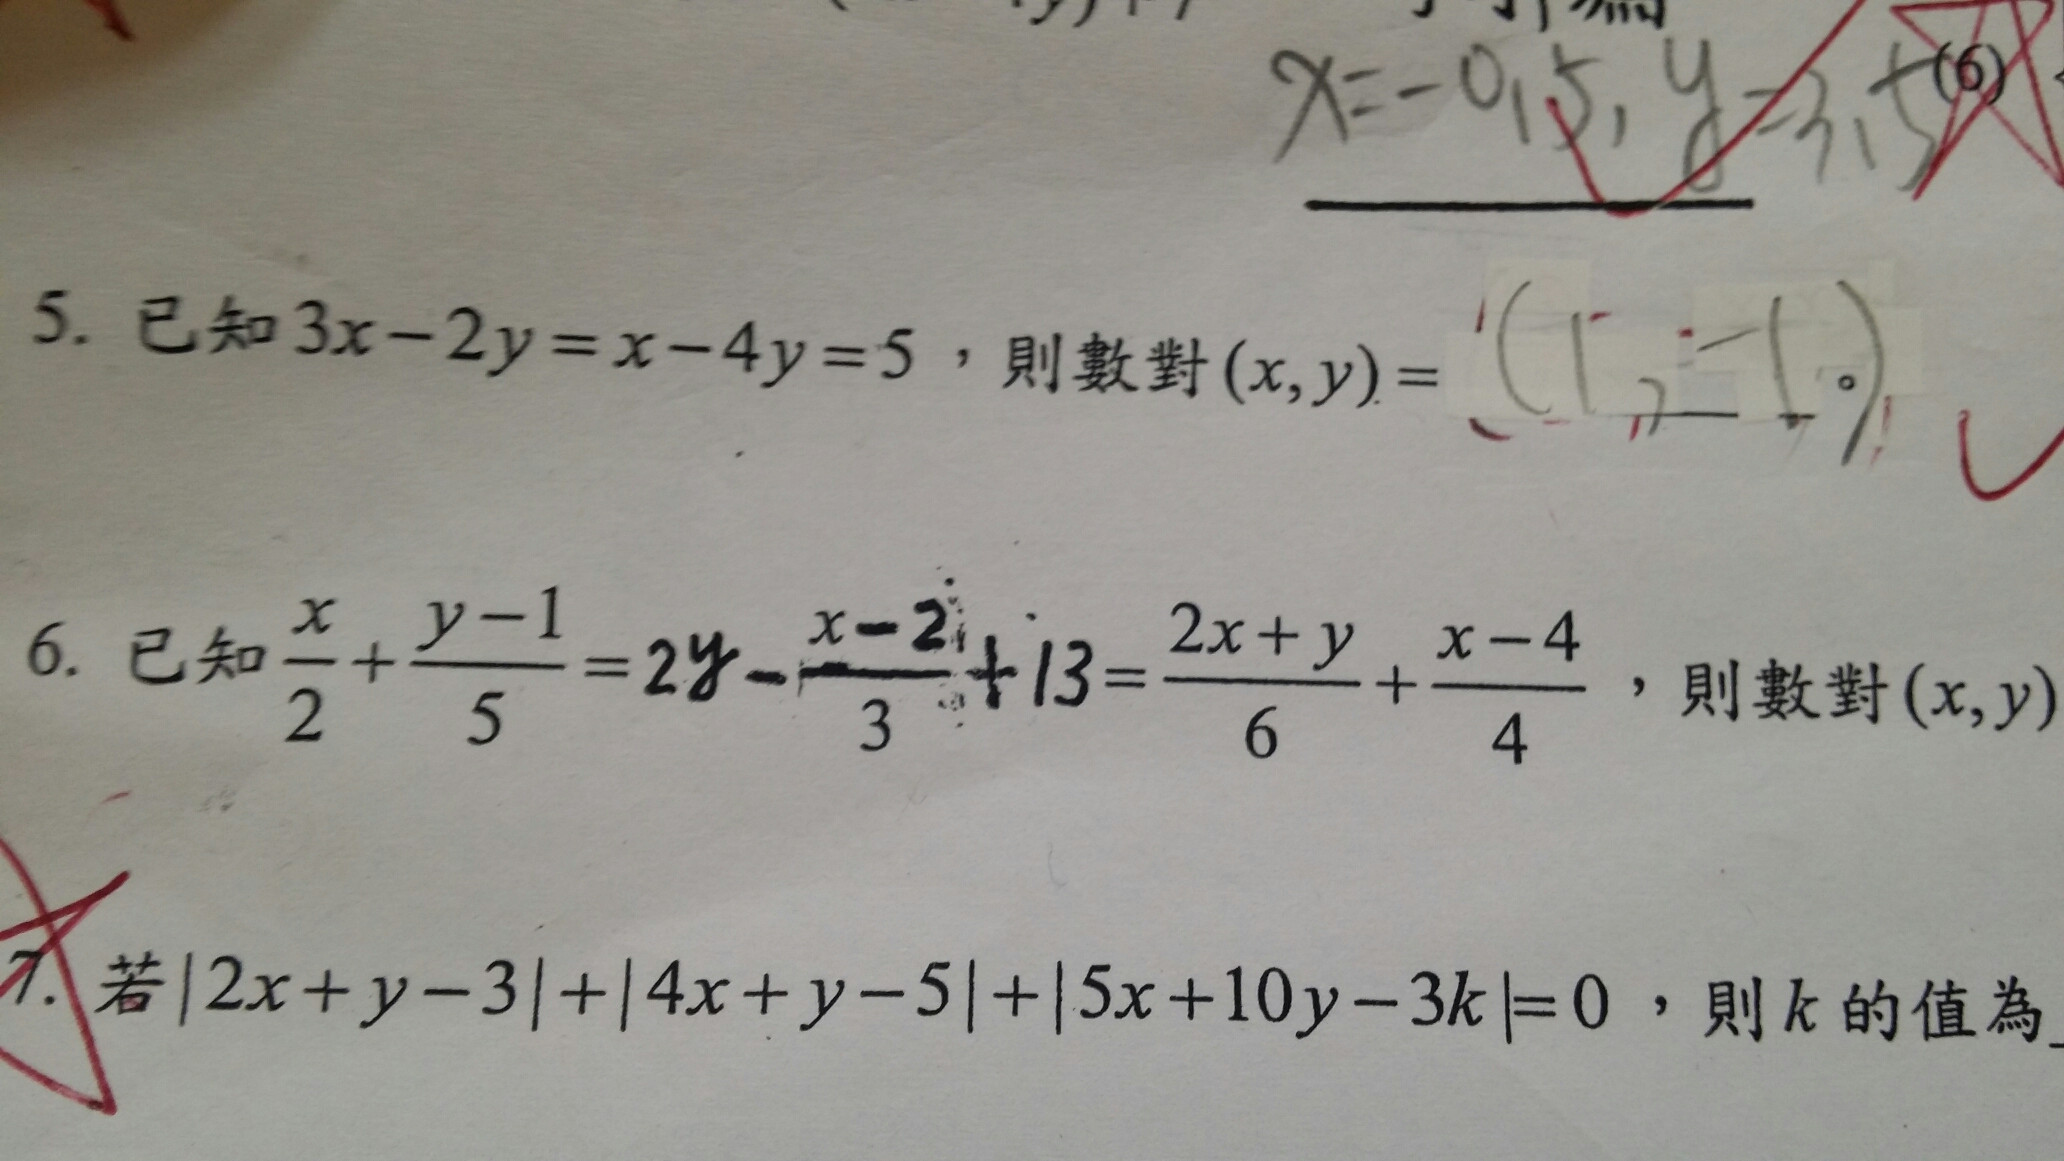 x=-0.5, y=3.5 (6)
5. 已知 3x-2y=x-4y=5，則數對(x, y)= (1, -1)。
6. 已知 x/2 + (y-1)/5 = 2y - (x-2)/3 + 13 = (2x+y)/6 + (x-4)/4，則數對(x, y)
7. 若|2x+y-3|+|4x+y-5|+|5x+10y-3k|=0，則 k 的值為